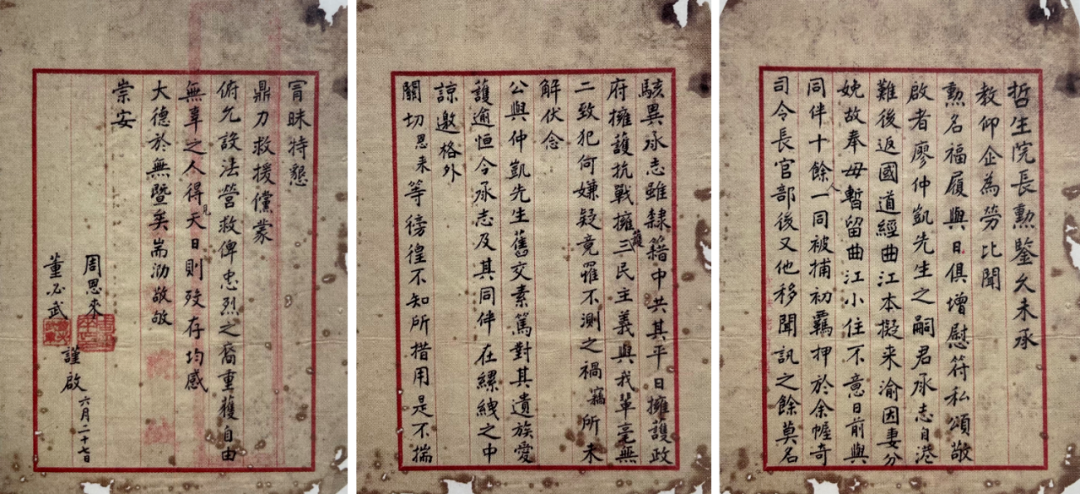 哲生院長勳鑒久未承
教仰企為勞比聞
勳名福履與日俱增慰符私頌敬
啟者廖仲凱先生之嗣君承志自港
難後返國道經曲江本擬來渝因妻分
娩故奉母暫留曲江小住不意日前與
同伴十餘人一同被捕初羈押於余幄奇
司令長官部後又他移聞訊之餘莫名
駭異承志雖隸籍中共其平日擁護政
府擁護抗戰擁護三民主義與我輩毫無
二致犯何嫌疑竟罹不測之禍竊所未
解伏念
公與仲凱先生舊交素篤對其遺族愛
護逾恒今承志及其同伴在縲絏之中
諒邀格外
關切思来等徬徨不知所措用是不揣
冒昧特懇
鼎力救援儻蒙
俯允設法營救俾忠烈之裔重獲自由
無辜之人得見天日則歿存均感
大德於無暨矣耑泐敬敏
崇安
周恩來
董必武
謹啟 六月二十七日